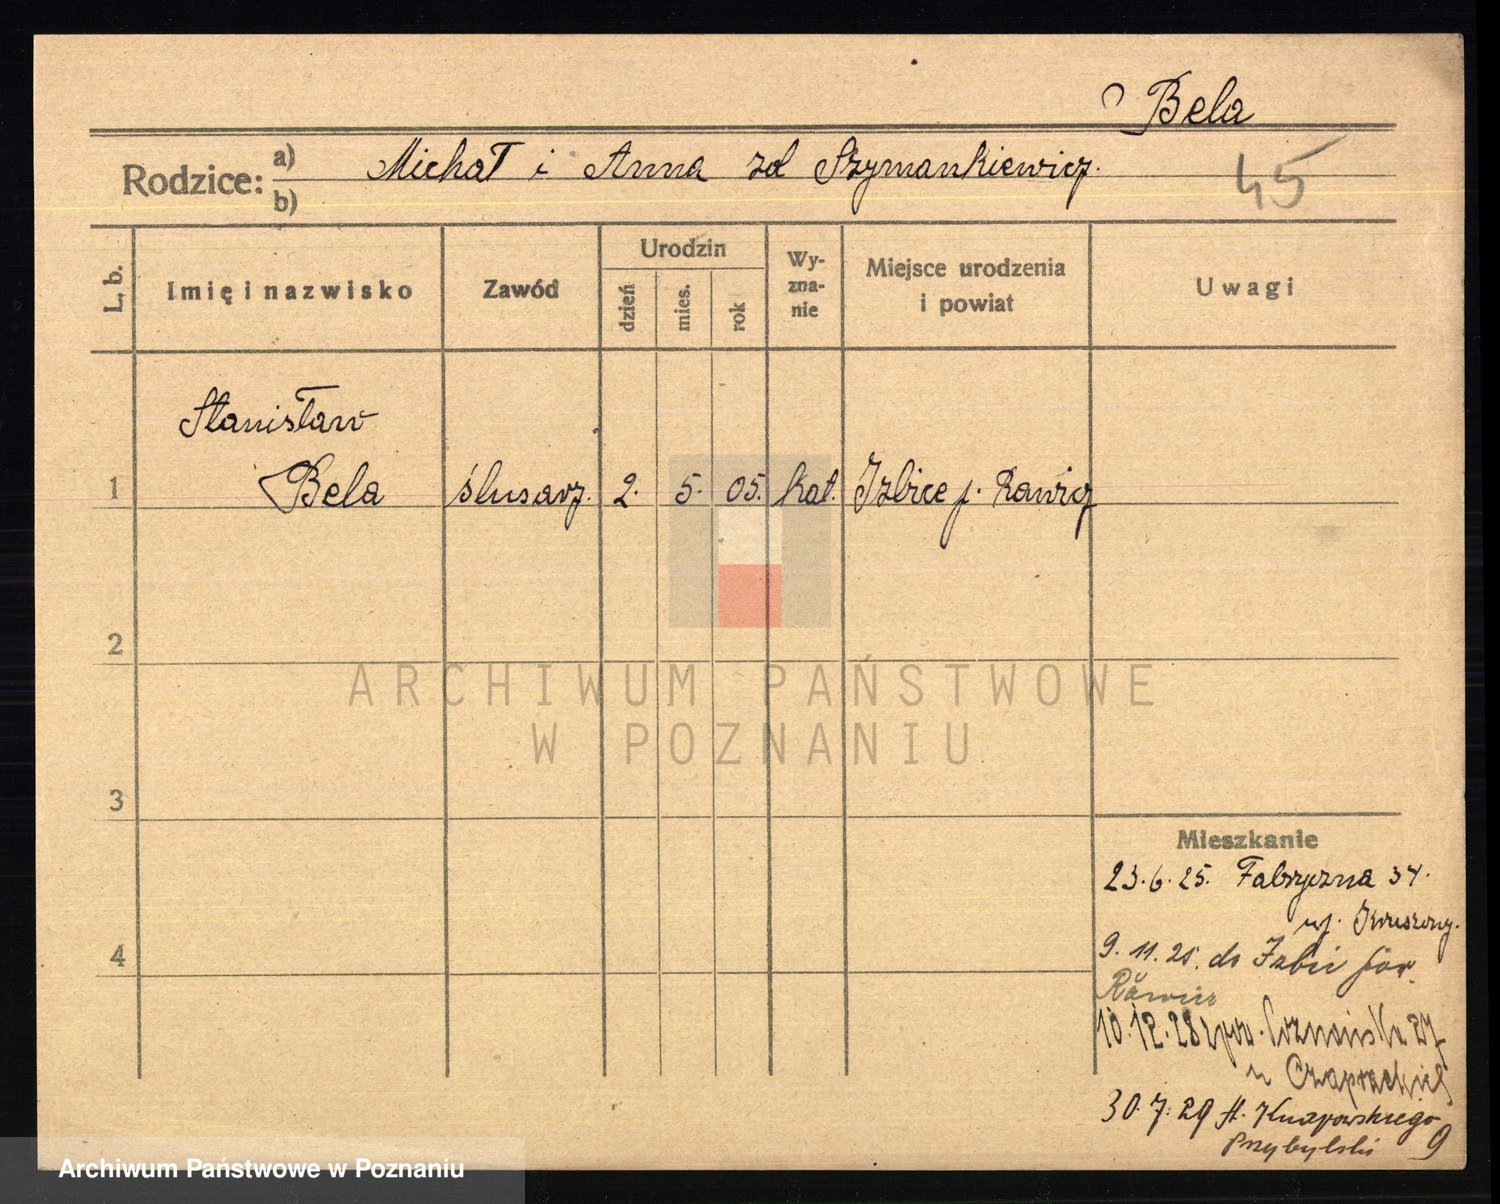 Bela
Rodzice: a) Michał i Anna zd Szymankiewicz.
b)
45
L. b.
Imię i nazwisko
Zawód
Urodzin
dzień
mies.
rok
Wy-
zna-
nie
Miejsce urodzenia
i powiat
Uwagi
Stanisław
1 Bela ślusarz. 2. 5. 05. kat. Izbice p. Rawicz
2
ARCHIWUM PAŃSTWOWE
W POZNANIU
3
Mieszkanie
23.6.25. Fabryczna 34.
4
9. 11. 25. do Izbic pow
Rawicz
10.12.28 Poznańska 27
u
30.7.29 Knapowskiego
Przybylski 9
Archiwum Państwowe w Poznaniu